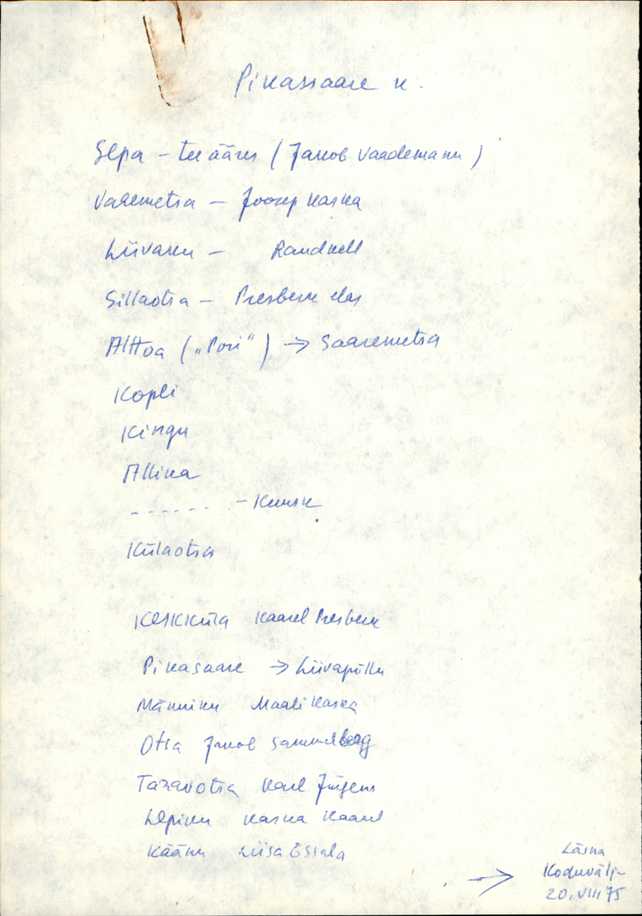 Pikassaare k.
Sepa – tee ääres (Jakob Vaademann)
Vahemetsa – Joosep Kaska
Liivaku – Randkell
Sillaotsa – Presberk elas
Alttoa („Pori“) → Saaremetsa
Kopli
Kingu
Allika
- - - - - - – Kuusk
Külaotsa
Keskküla Kaarel Presberk
Pikasaare → Liivapõllu
Männiku Maali Kaska
Otsa Jakob Sammelberg
Taravotsa Karl Jürgens
Lepiku Kaska Kaarel
Käänu Liisa Essala
→ Läsna
Koduvälja
20.VIII 75